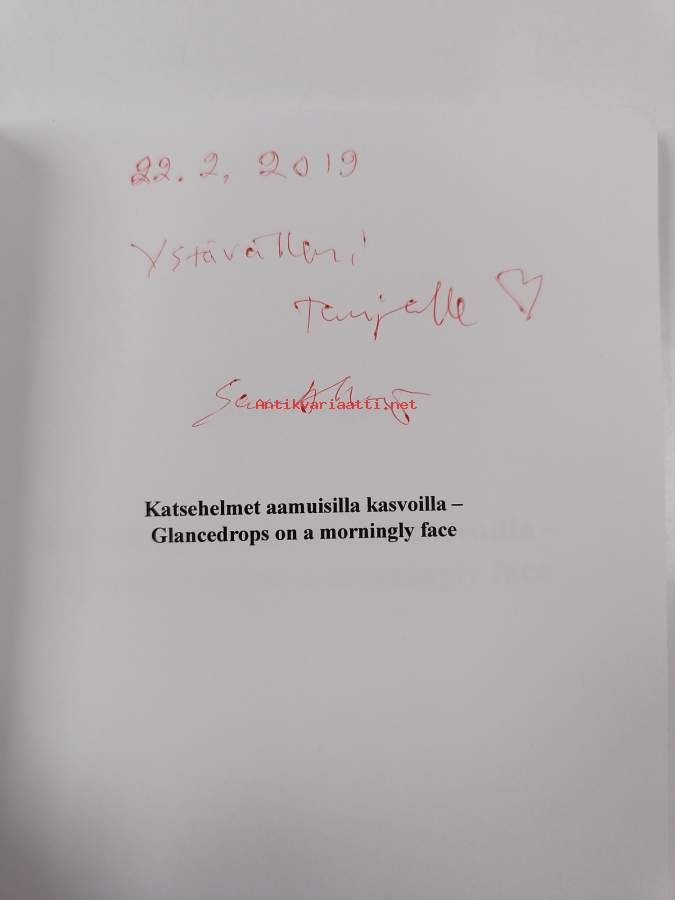 22.2.2019
Ystävälleni
Tanjalle
Antikvariaatti.net
Katsehelmet aamuisilla kasvoilla –
Glancedrops on a morningly face